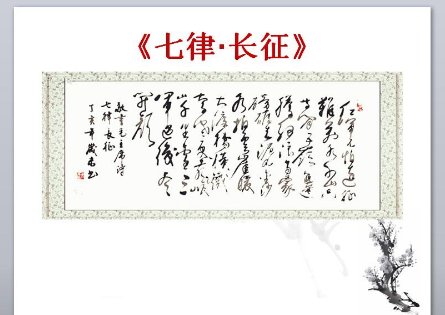 《七律·长征》
红军不怕远征
难万水千山
只等闲五岭逶
迤腾细浪乌蒙
磅礴走泥丸金沙
水拍云崖暖
大渡桥横铁
索寒更喜岷
山千里雪三
军过后尽
开颜
敬书毛主席诗
七律长征
丁亥年